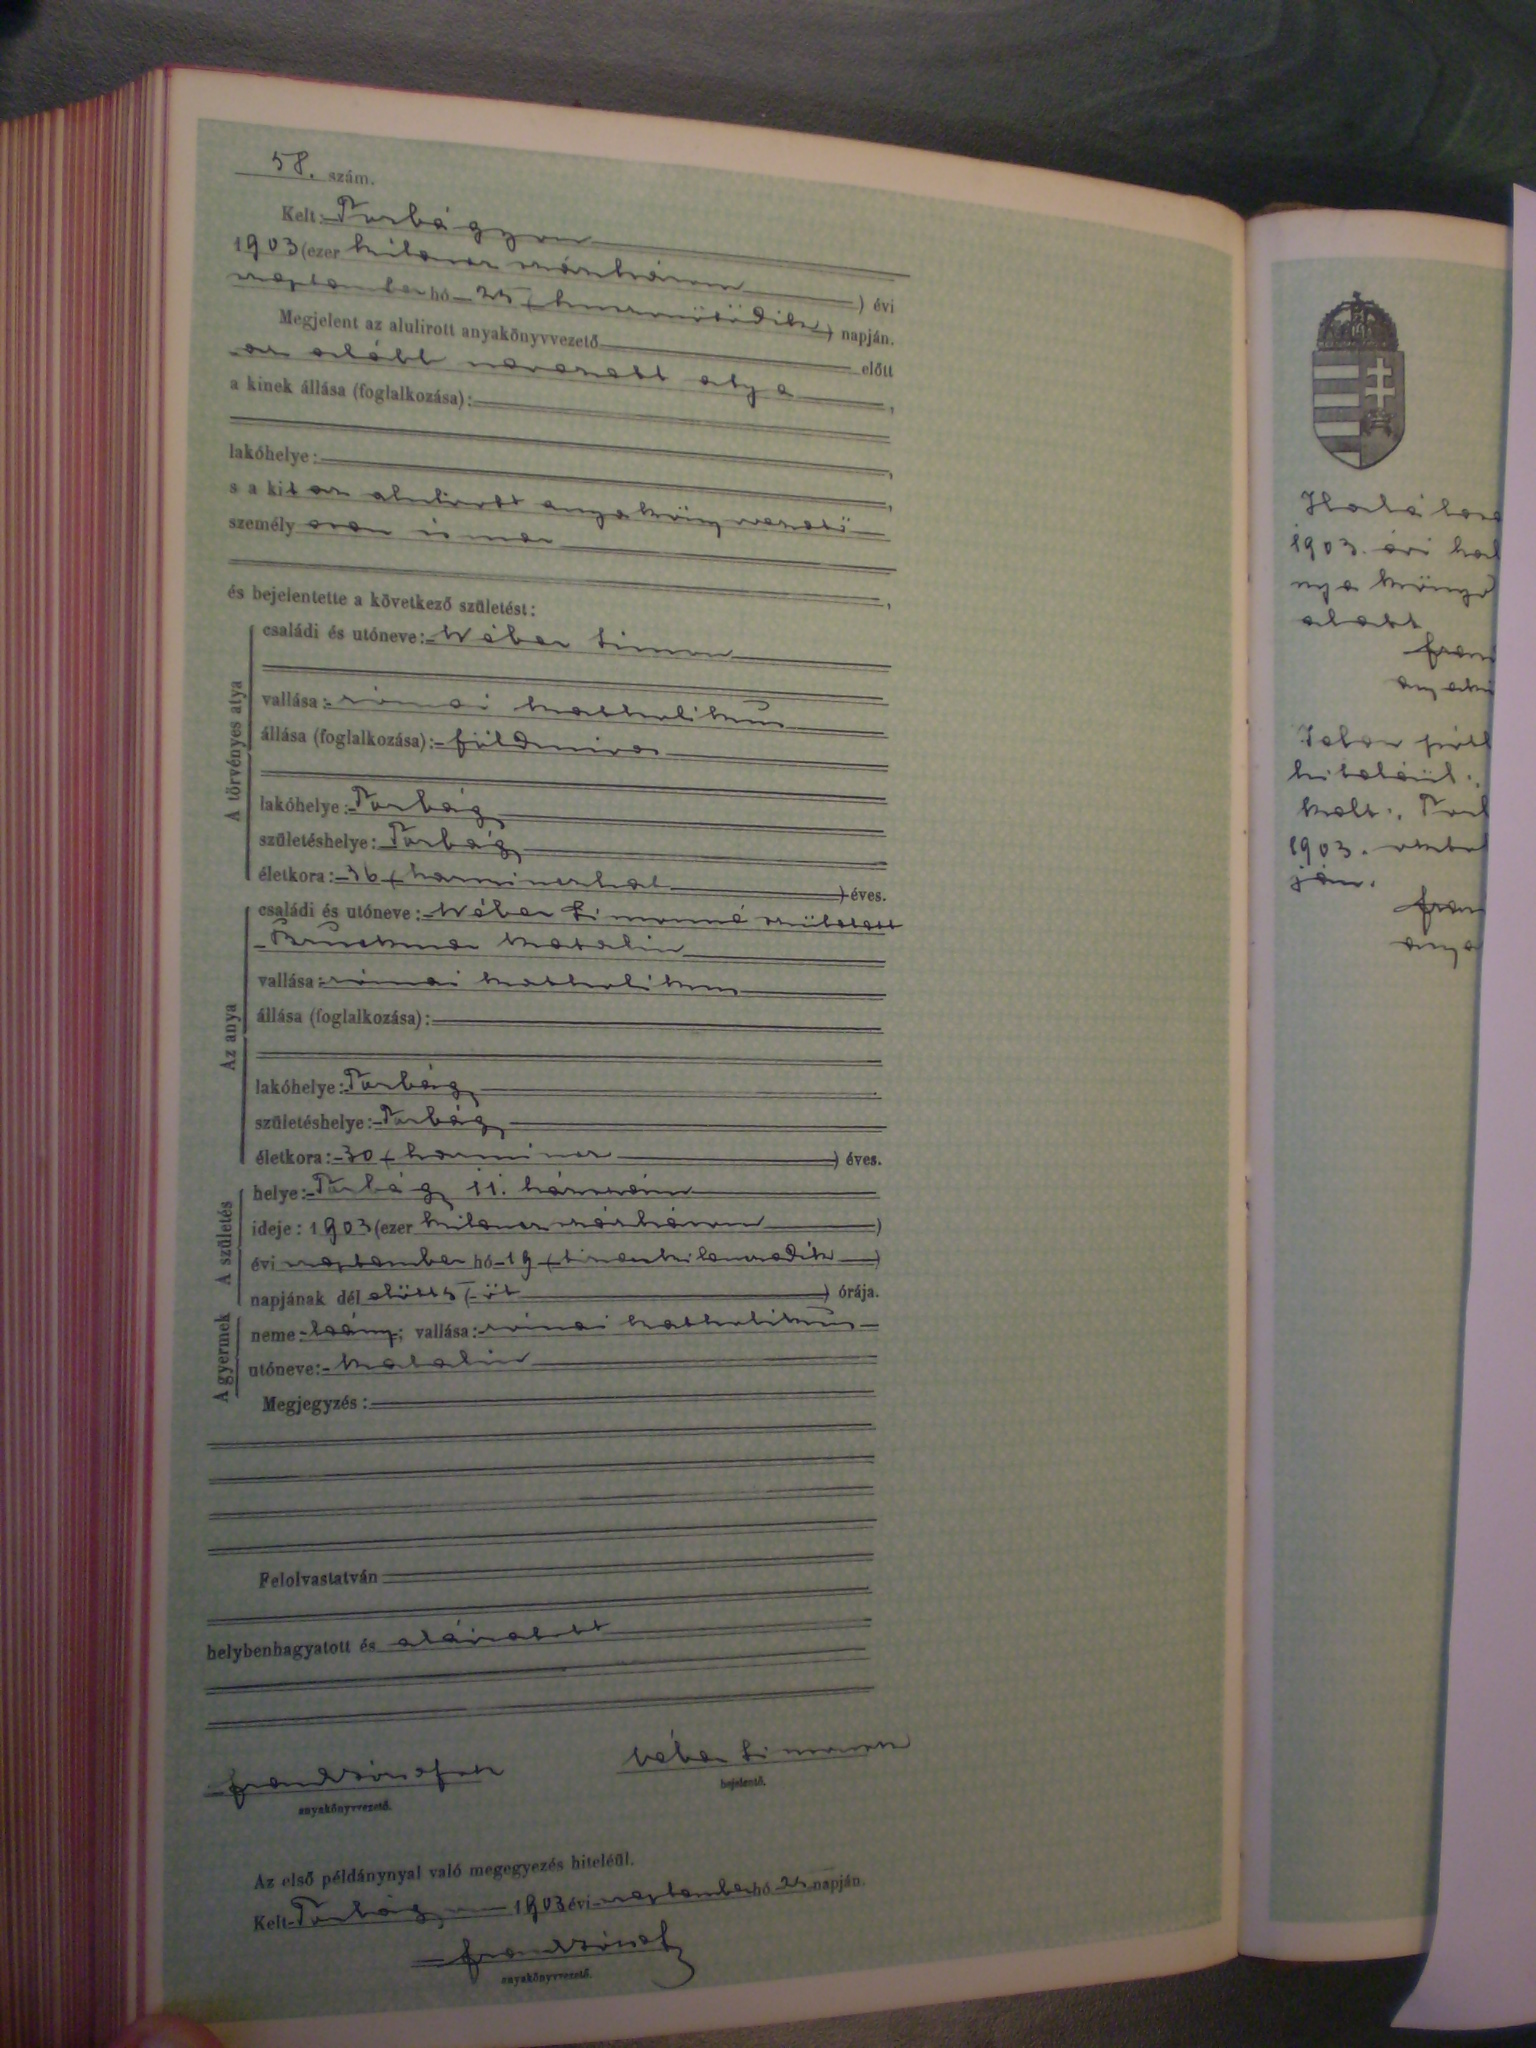 58. szám.
Kelt: Torbágyon
1903 (ezer kilencz százhárom) évi
szeptember hó 25 (huszonötödik) napján.
Megjelent az alulirott anyakönyvvezető előtt
az alább nevezett atya,
a kinek állása (foglalkozása):
lakóhelye:
s a kit az alulirott anyakönyvvezető
személyesen ismer
és bejelentette a következő születést:
A törvényes atya
családi és utóneve: Wéber Simon
vallása: római katholikus
állása (foglalkozása): földmives
lakóhelye: Torbágy
születéshelye: Torbágy
életkora: 36 (harminczhat) éves.
Az anya
családi és utóneve: Wéber Simonné született
Bruckner Katalin
vallása: római katholikus
állása (foglalkozása):
lakóhelye: Torbágy
születéshelye: Torbágy
életkora: 30 (harmincz) éves.
A születés
helye: Torbágy 11. házszám
ideje: 1903 (ezer kilencz százhárom)
évi szeptember hó 19 (tizenkilenczedik)
napjának dél előtt 5 (öt) órája.
A gyermek
neme: leány; vallása: római katholikus
utóneve: Katalin
Megjegyzés:
Felolvastatván
helybenhagyatott és aláiratott
Wéber Simon
anyakönyvvezető.
bejelentő.
Az első példánynyal való megegyezés hiteléül.
Kelt Torbágyon 1903 évi szeptember hó 25 napján.
anyakönyvvezető.
1903. évi
alatt
hiteléül.
kelt:
1903.
ján.